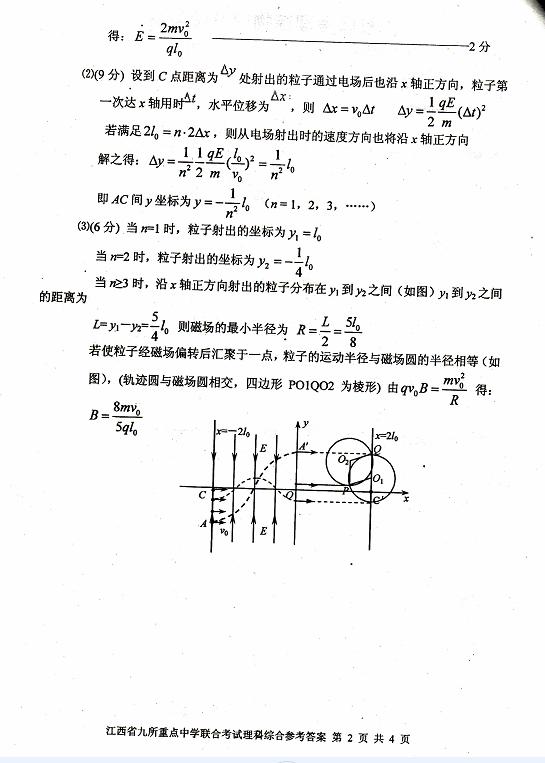 得: E = 2mv₀²/ql₀ ——2 分
⑵(9 分) 设到 C 点距离为 Δy 处射出的粒子通过电场后也沿 x 轴正方向，粒子第
一次达 x 轴用时 Δt，水平位移为 Δx，则 Δx = v₀Δt Δy = 1/2 qE/m (Δt)²
若满足 2l₀ = n·2Δx，则从电场射出时的速度方向也将沿 x 轴正方向
解之得: Δy = 1/n² 1/2 qE/m (l₀/v₀)² = 1/n² l₀
即 AC 间 y 坐标为 y = −1/n² l₀ （n = 1，2，3，……）
⑶(6 分) 当 n=1 时，粒子射出的坐标为 y₁ = l₀
当 n=2 时，粒子射出的坐标为 y₂ = −1/4 l₀
当 n≥3 时，沿 x 轴正方向射出的粒子分布在 y₁ 到 y₂ 之间（如图）y₁ 到 y₂ 之间
的距离为
L=y₁−y₂=5/4 l₀ 则磁场的最小半径为 R = L/2 = 5l₀/8
若使粒子经磁场偏转后汇聚于一点，粒子的运动半径与磁场圆的半径相等（如
图），(轨迹圆与磁场圆相交，四边形 PO1QO2 为棱形) 由 qv₀B = mv₀²/R 得:
B = 8mv₀/5ql₀
x=−2l₀ E y A′ x=2l₀
O₂ Q
C O P O₁ x
A v₀ E C′
江西省九所重点中学联合考试理科综合参考答案 第 2 页 共 4 页